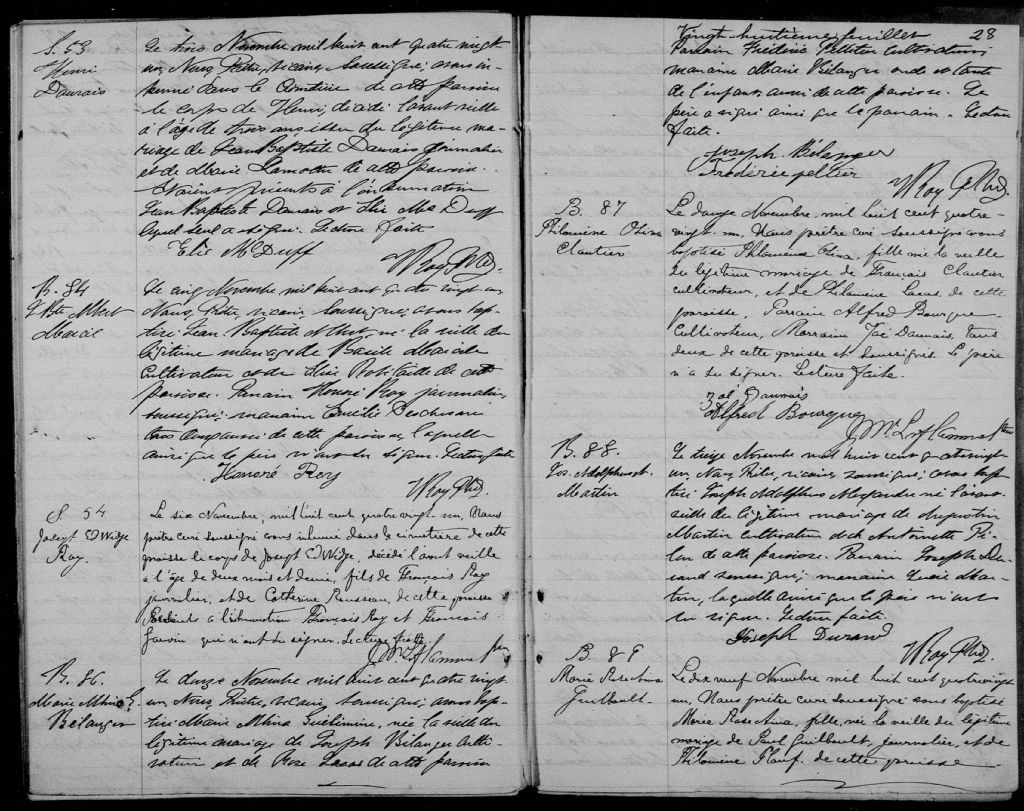 S. 53
Henri
Daunais
Le trois Novembre mil huit cent quatre vingt
un, Nous, Prêtre, vicaire, soussigné, avons in-
humé dans le cimetière de cette paroisse
le corps de Henri, décédé l'avant veille
à l'âge de trois ans issu du légitime ma-
riage de Jean Baptiste Daunais journalier
et de Marie Lamothe de cette paroisse.
Etaient présents à l'inhumation
Jean Baptiste Daunais et Elie Mc Duff
lequel seul a signé. Lecture faite
Elie McDuff
B. 84
J. Bte Albert
Marcil
Le cinq Novembre mil huit cent quatre vingt un
Nous, Prêtre, vicaire, soussigné, avons bap-
tisé Jean Baptiste Albert, né la veille du
légitime mariage de Basile Marcil
cultivateur et de Robitaille de cette
paroisse. Parrain Honoré Roy journalier,
soussigné; marraine
tous deux aussi de cette paroisse, laquelle
ainsi que le père n'ont su signer. Lecture faite
Honoré Roy
S 54
Joseph Edwidge
Roy.
Le six Novembre, mil huit cent quatre vingt-un, Nous
prêtre curé soussigné avons inhumé dans le cimetière de cette
paroisse le corps de Joseph Edwidge, décédé l'avant veille
à l'âge de deux mois et demi, fils de François Roy
journalier, et de Catherine Rousseau, de cette paroisse
Présents à l'inhumation François Roy et François
qui n'ont su signer. Lecture faite.
B. 86.
Marie Albina G.
Bélanger
Le douze Novembre mil huit cent quatre vingt
un, Nous, Prêtre, vicaire, soussigné, avons bap-
tisé Marie Albina née la veille du
légitime mariage de Joseph Bélanger culti-
vateur et de Rose de cette paroisse
Vingt huitième feuillet 28
Parrain Frédéric Pelletier cultivateur;
marraine Marie Bélanger oncle et tante
de l'enfant, aussi de cette paroisse. Le
père a signé ainsi que le parrain. Lecture
faite.
Joseph Bélanger
Frédéric peltier
B. 87
Philomène Olivina
Cloutier
Le douze Novembre, mil huit cent quatre-
vingt-un, Nous prêtre curé soussigné avons
baptisé Philomène, fille née la veille
du légitime mariage de François Cloutier
cultivateur, et de Philomène, de cette
paroisse. Parrain Alfred Bourque
cultivateur, Marraine Zoé Daunais, tous
deux de cette paroisse et soussignés. Le père
n'a su signer. Lecture faite.
Zoé Daunais
Alfred Bourque
B. 88.
Jos. Adolphus A.
Martin
Le treize Novembre mil huit cent quatre vingt
un, Nous, Prêtre, vicaire, soussigné, avons bap-
tisé Joseph Adolphus Alexandre né l'avant
veille du légitime mariage de Augustin
Martin cultivateur et de Antoinette
de cette paroisse. Parrain Joseph Du-
rand soussigné; marraine Mar-
tin, laquelle ainsi que le père n'ont
su signer. Lecture faite.
Joseph Durand
B. 89
Marie Rose Anna
Guilbault.
Le dix neuf Novembre mil huit cent quatre vingt
un, Nous prêtre curé soussigné avons baptisé
Marie Rose Anna, fille, née la veille du légitime
mariage de Paul Guilbault, journalier, et de
Philomène Plouf. de cette paroisse.